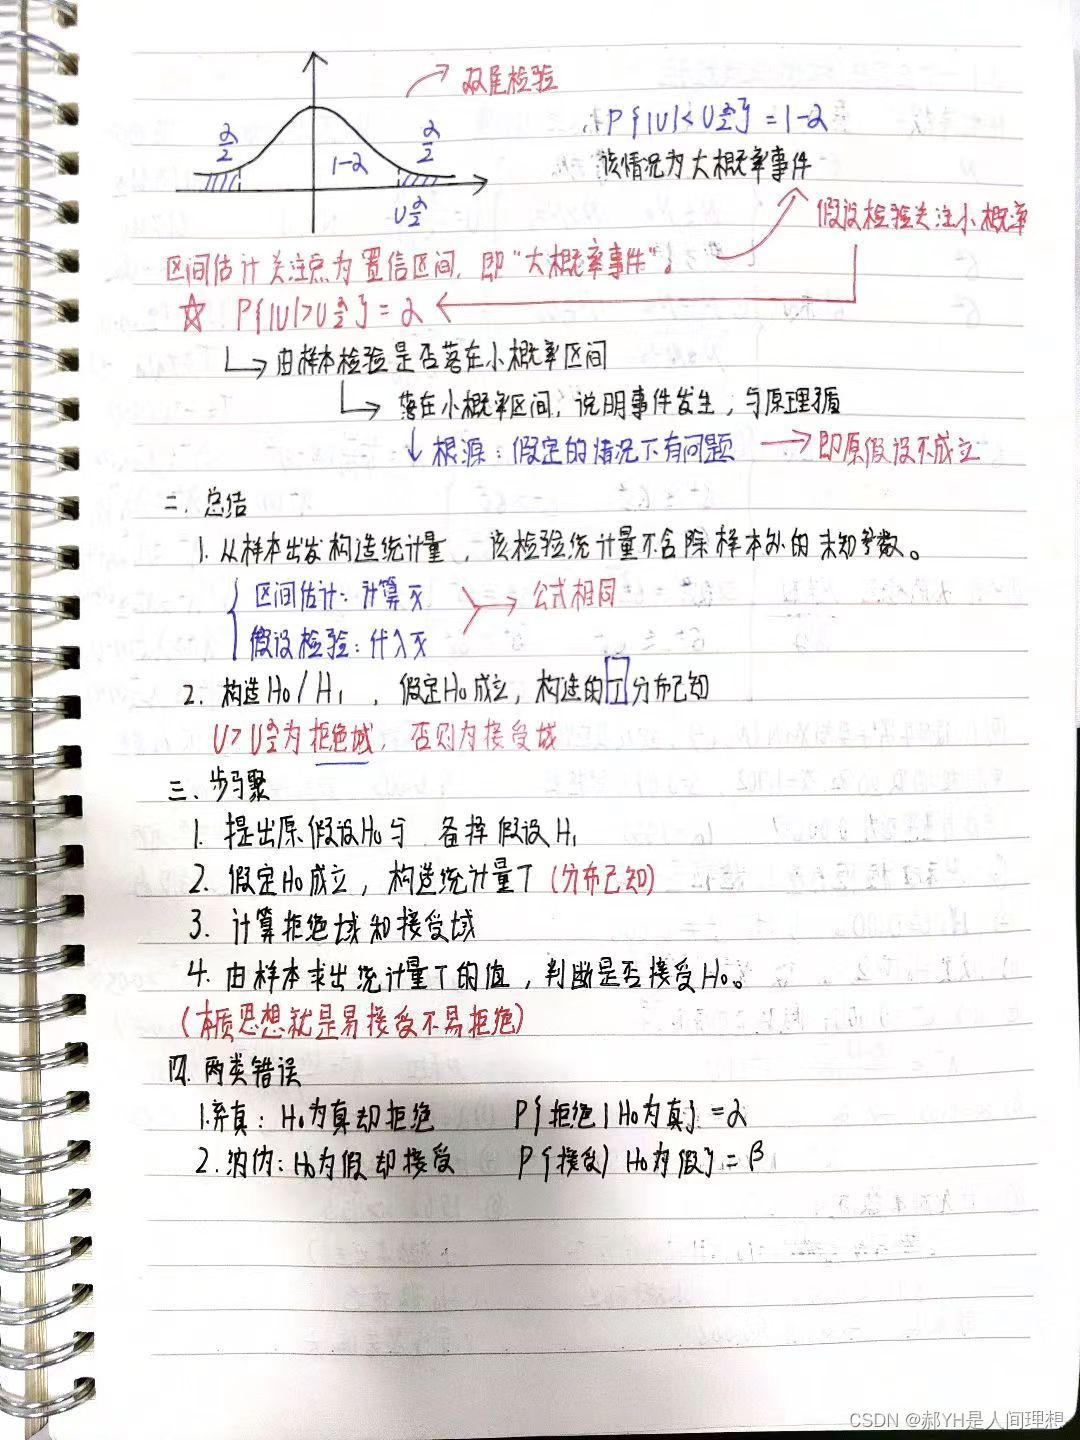 双尾检验
α/2 1-α α/2
P{|U|<Uα/2}=1-α
该情况为大概率事件
Uα/2
假设检验关注小概率
区间估计关注点为置信区间，即“大概率事件”。
☆ P{|U|>Uα/2}=α
由样本检验是否落在小概率区间
落在小概率区间，说明事件发生，与原理矛盾
根源：假定的情况下有问题 → 即原假设不成立
二、总结
1. 从样本出发构造统计量，该检验统计量不含除样本外的未知参数。
区间估计：计算x̄
→ 公式相同
假设检验：代入x̄
2. 构造H0/H1，假定H0成立，构造的T分布已知
U>Uα/2为拒绝域，否则为接受域
三、步骤
1. 提出原假设H0与 备择假设H1
2. 假定H0成立，构造统计量T（分布已知）
3. 计算拒绝域和接受域
4. 由样本求出统计量T的值，判断是否接受H0。
（本质思想就是易接受不易拒绝）
四. 两类错误
1.弃真：H0为真却拒绝 P{拒绝|H0为真}=α
2.纳伪：H0为假却接受 P{接受|H0为假}=β
CSDN @郝YH是人间理想